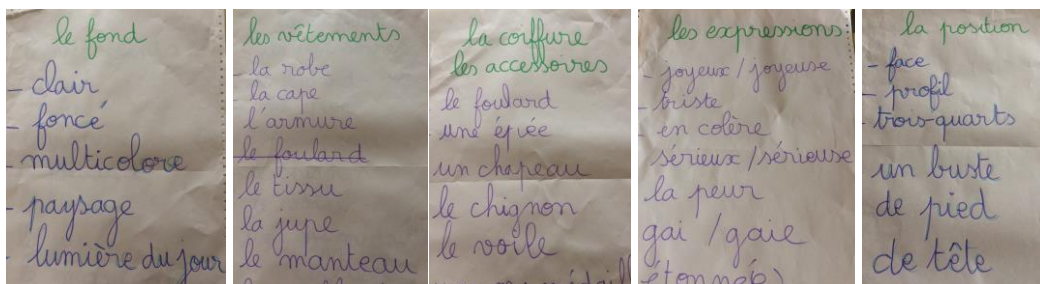 le fond
- clair
- foncé
- multicolore
- paysage
- lumière du jour
les vêtements
- la robe
la cape
l'armure
le foulard
le tissu
la jupe
le manteau
la coiffure
les accessoires
le foulard
une épée
un chapeau
le chignon
le voile
les expressions
- joyeux / joyeuse
- triste
- en colère
sérieux / sérieuse
la peur
gai / gaie
étonné(e)
la position
- face
- profil
- trois-quarts
un buste
de pied
de tête